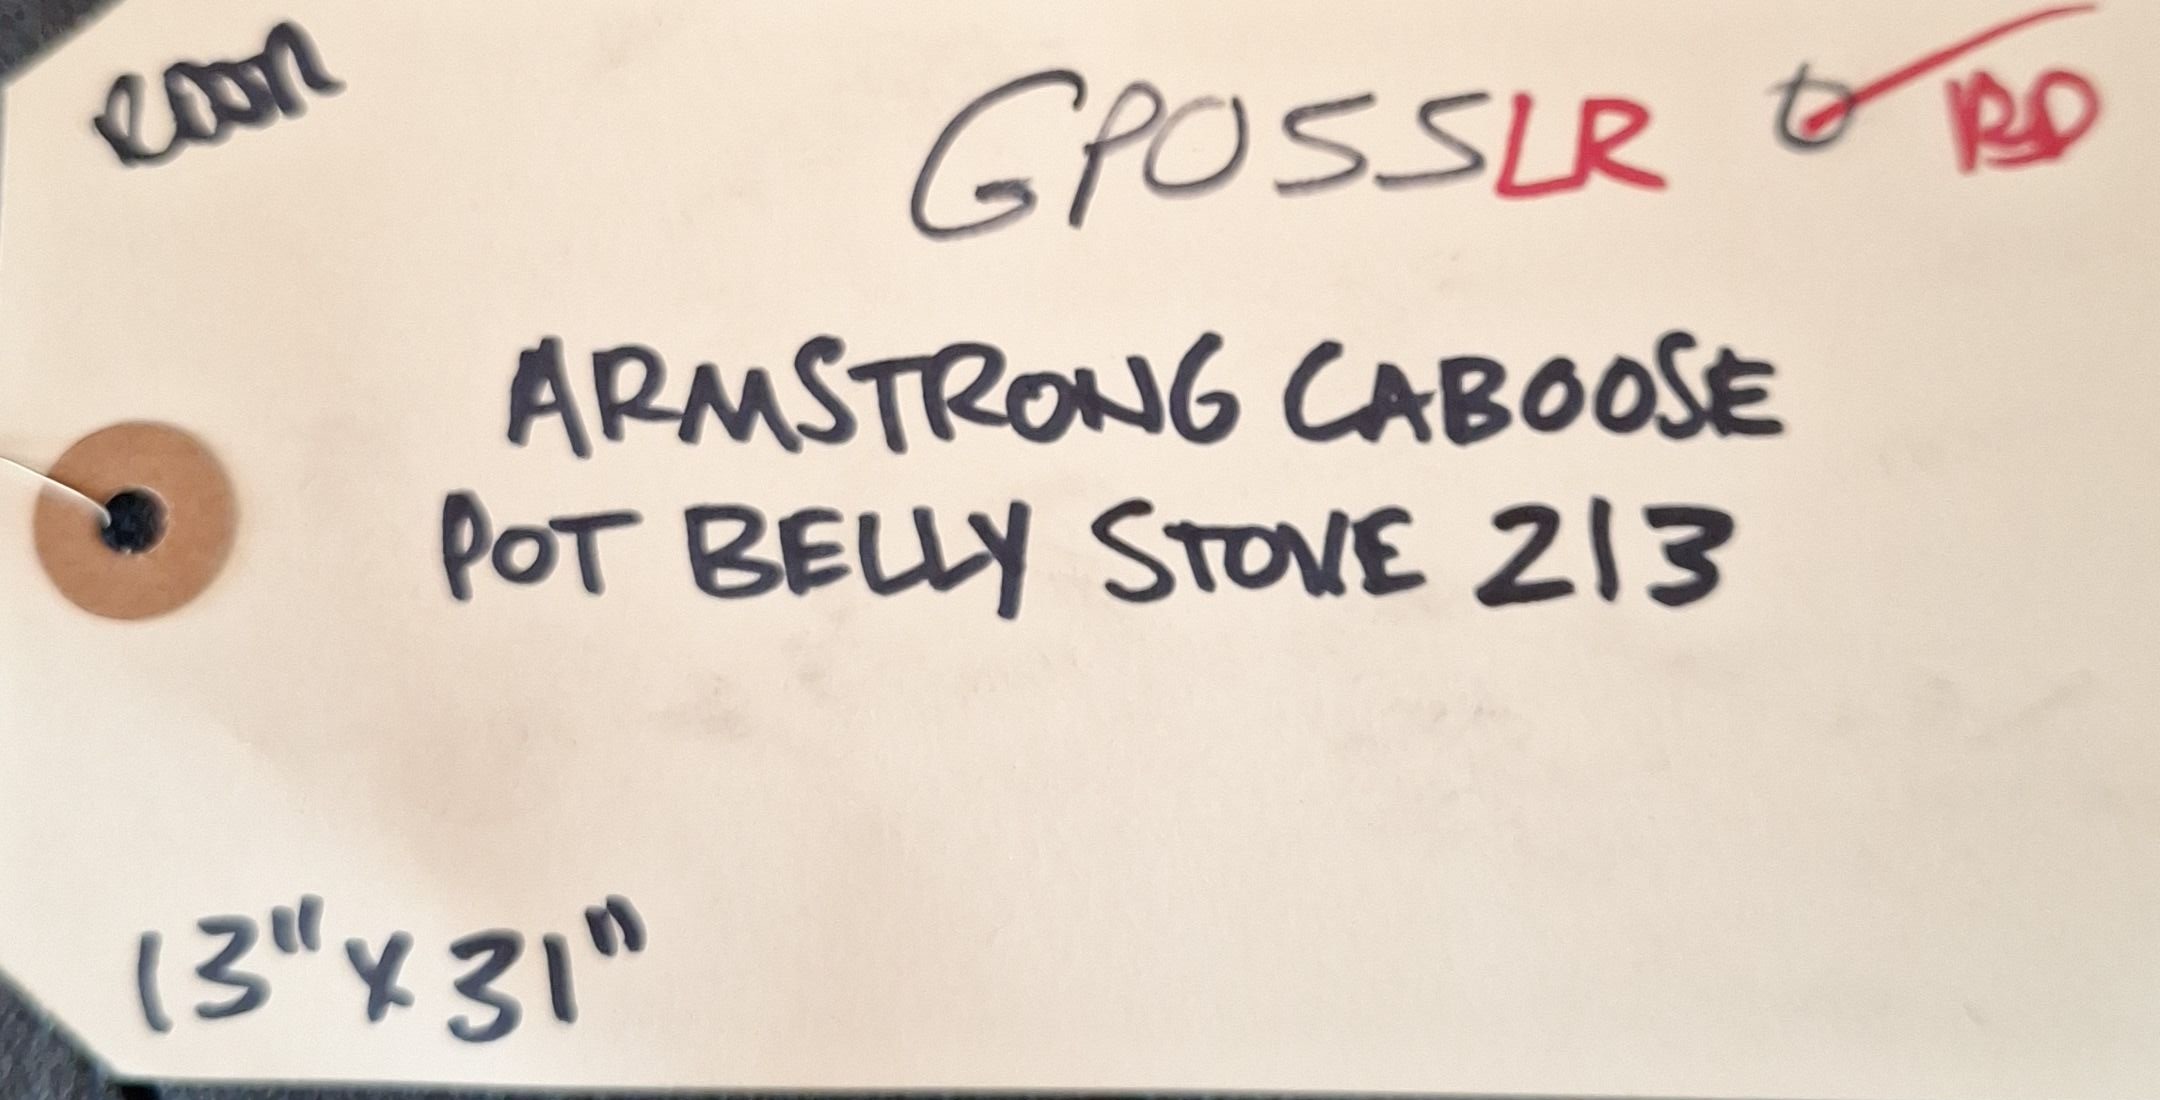 GP055LR
ARMSTRONG CABOOSE
POT BELLY STOVE 213
13" x 31"